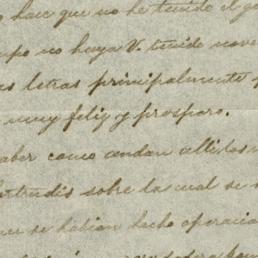 hace que no he tenido el g
po no haya V. tenido nove
as letras principalmente
muy feliz y prospero.
saber como andan alli las
ertrudis sobre las cual se
se habian hecho operacio